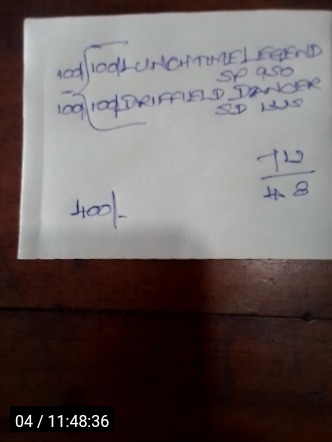 100/ 100/ LUNCHTIME LEGEND
SP 950
100/ 100/ DRIFFIELD DANCER
SD
400/-
4.8
04 / 11:48:36